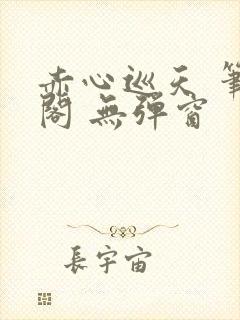 赤心巡天 筆
閣 無彈窗
長宇宙